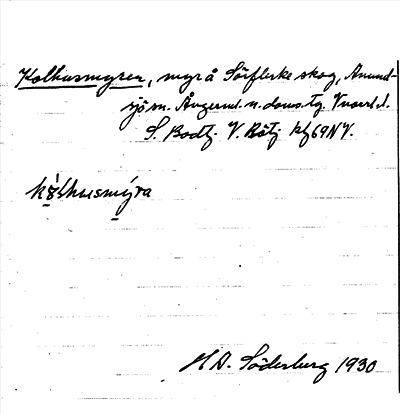 Kolhusmyren, myr å Sörflärke skog, Anund-
sjö sn. Ångerml. n. doms. tg.
S. Bodtj. V. Båtj kbl 69 NV.
kölhusmýra
H. D. Söderberg 1930